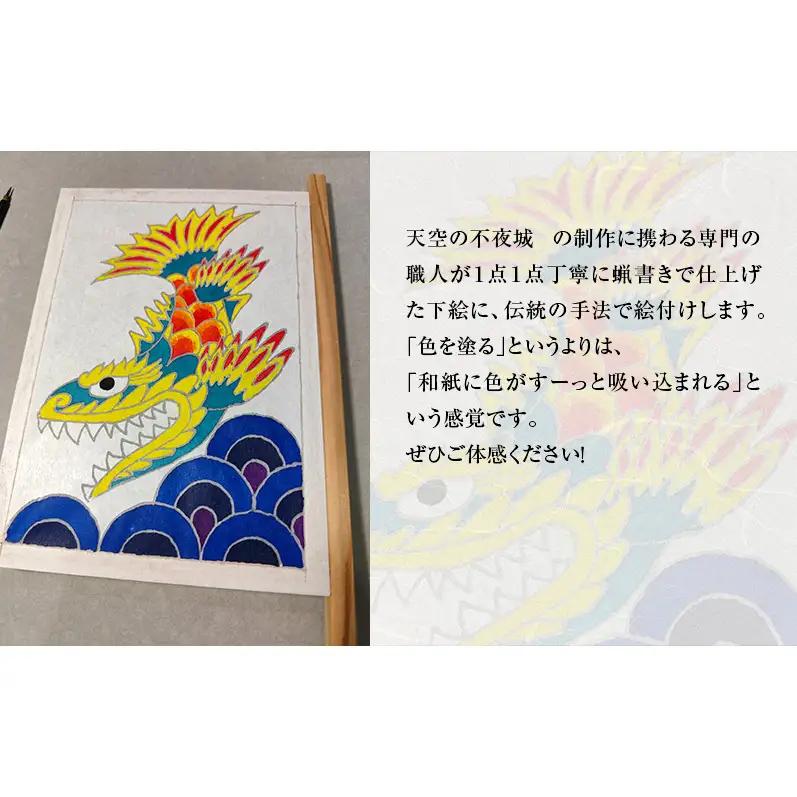 天空の不夜城　の制作に携わる専門の
職人が1点1点丁寧に蝋書きで仕上げ
た下絵に、伝統の手法で絵付けします。
「色を塗る」というよりは、
「和紙に色がすーっと吸い込まれる」と
いう感覚です。
ぜひご体感ください!